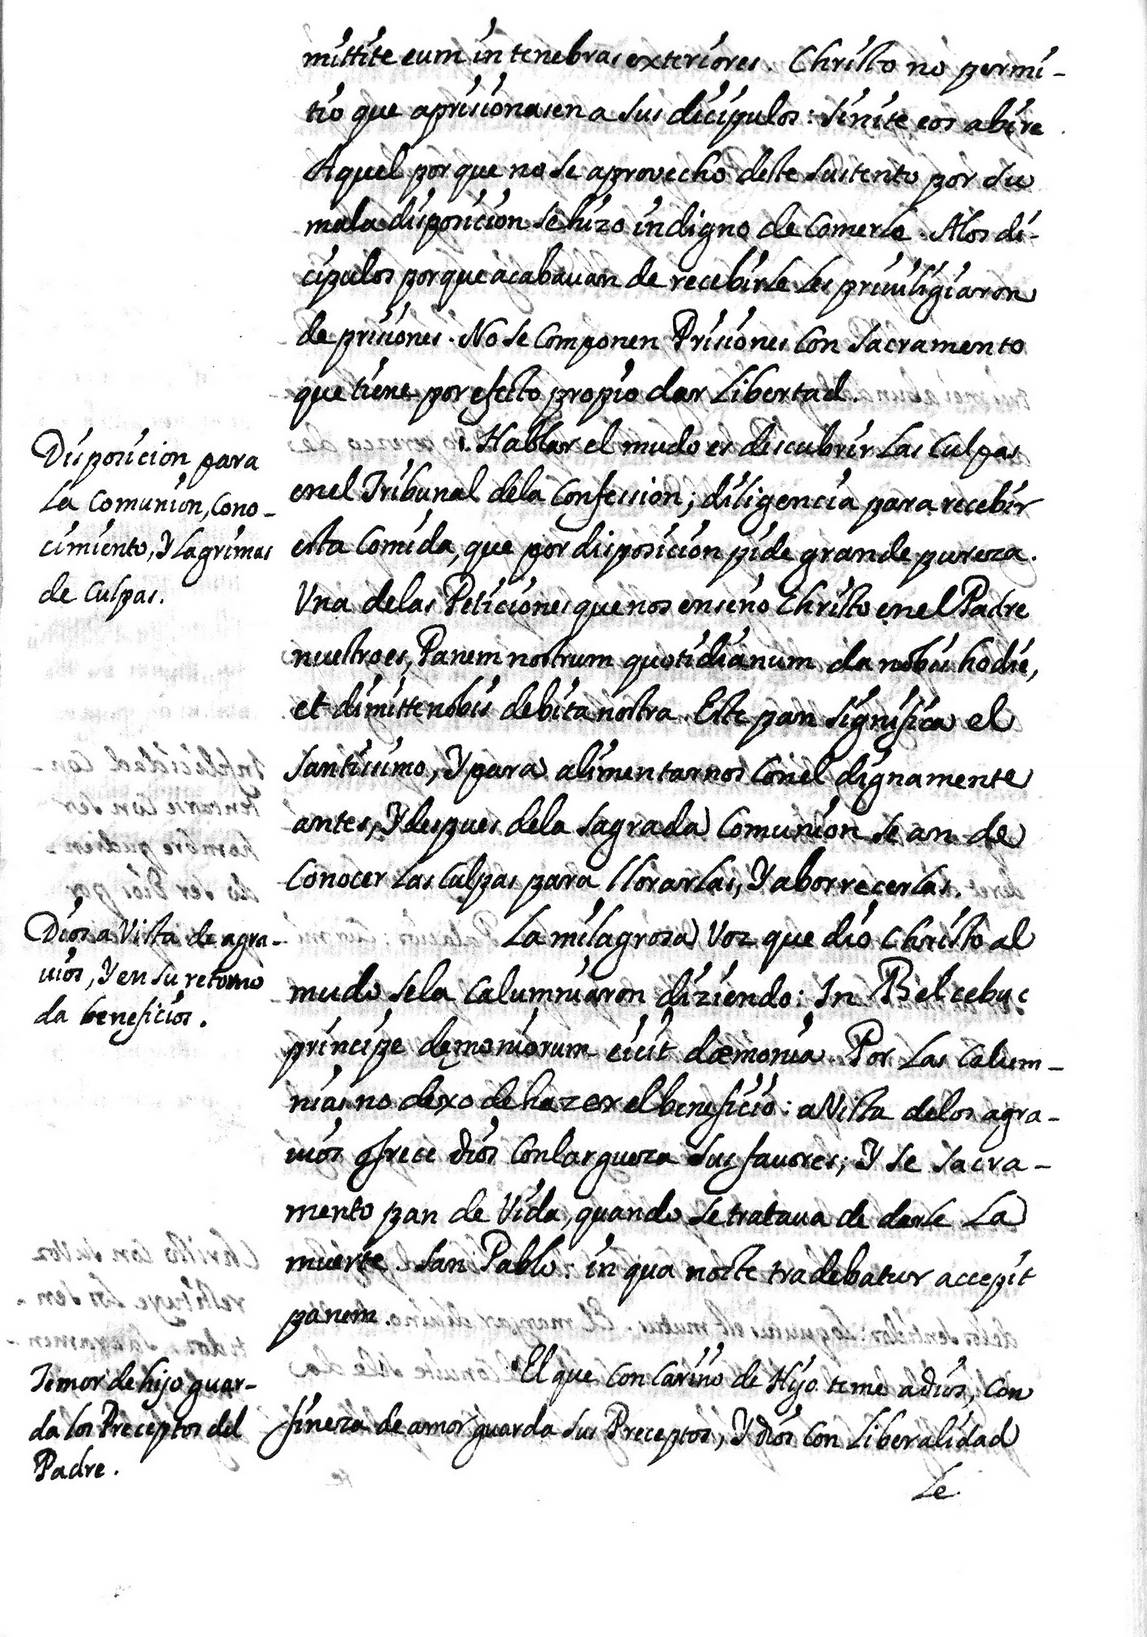 mittite eum in tenebras exteriores. Christo no permi-
tio que aprisionasen a sus dicipulos: Sinite eos abire
Aquel porque no se aprovecho deste sustento por su
mala disposicion se hizo indigno de Comerle. Alos di-
cipulos porque acabauan de recebirle les priuiligiaron
de prisiones. No se Componen Prisiones con Sacramento
que tiene por efecto propio dar Libertad.
Disposicion para
La Comunion, Cono-
cimiento, Y Lagrimas
de Culpas.
Hablar el mudo es descubrir Las Culpas
en el Tribunal dela Confession; diligencia para recebir
esta Comida, que por disposicion pide grande pureza.
Vna delas Peticiones que nos enseño Christo en el Padre
nuestro es, Panem nostrum quotidianum da nobis hodie,
et dimitte nobis debita nostra. Este pan significa el
Santissimo, Y para alimentarnos Con el dignamente
antes, Y despues dela Sagrada Comunion se an de
Conocer Las Culpas para llorarlas, Y aborrecerlas.
Dios a Vista de agra-
uios, Y en su retorno
da beneficios.
La milagrosa Voz que dio Christo al
mudo se la Calumniaron diziendo: In Belcebuc
principe demoniorum eicit dæmonia. Por Las Calum-
nias no dexo de hazer el beneficio: a Vista delos agra-
uios ofrece dios Con largueza sus fauores; Y se Sacra-
mento pan de Vida, quando se trataua de darle La
muerte. San Pablo: in qua nocte tradebatur accepit
panem.
Temor de hijo guar-
da los Preceptos del
Padre.
El que Con Cariño de Hijo teme a dios, Con
fineza de amor guarda sus Preceptos, Y dios Con Liberalidad
Le